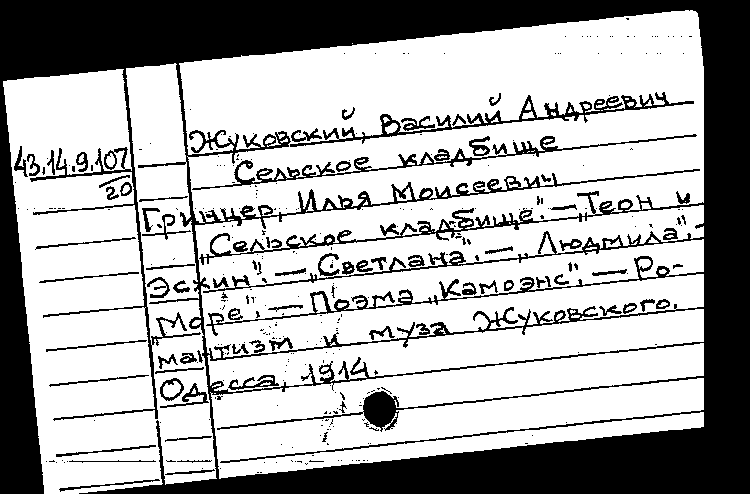 43.14.9.107
20
Жуковский, Василий Андреевич
Сельское кладбище
Гринцер, Илья Моисеевич
„Сельское кладбище". — „Теон и
Эсхин". — „Светлана". — „Людмила". —
„Море". — Поэма „Камоэнс". — Ро-
мантизм и муза Жуковского.
Одесса, 1914.